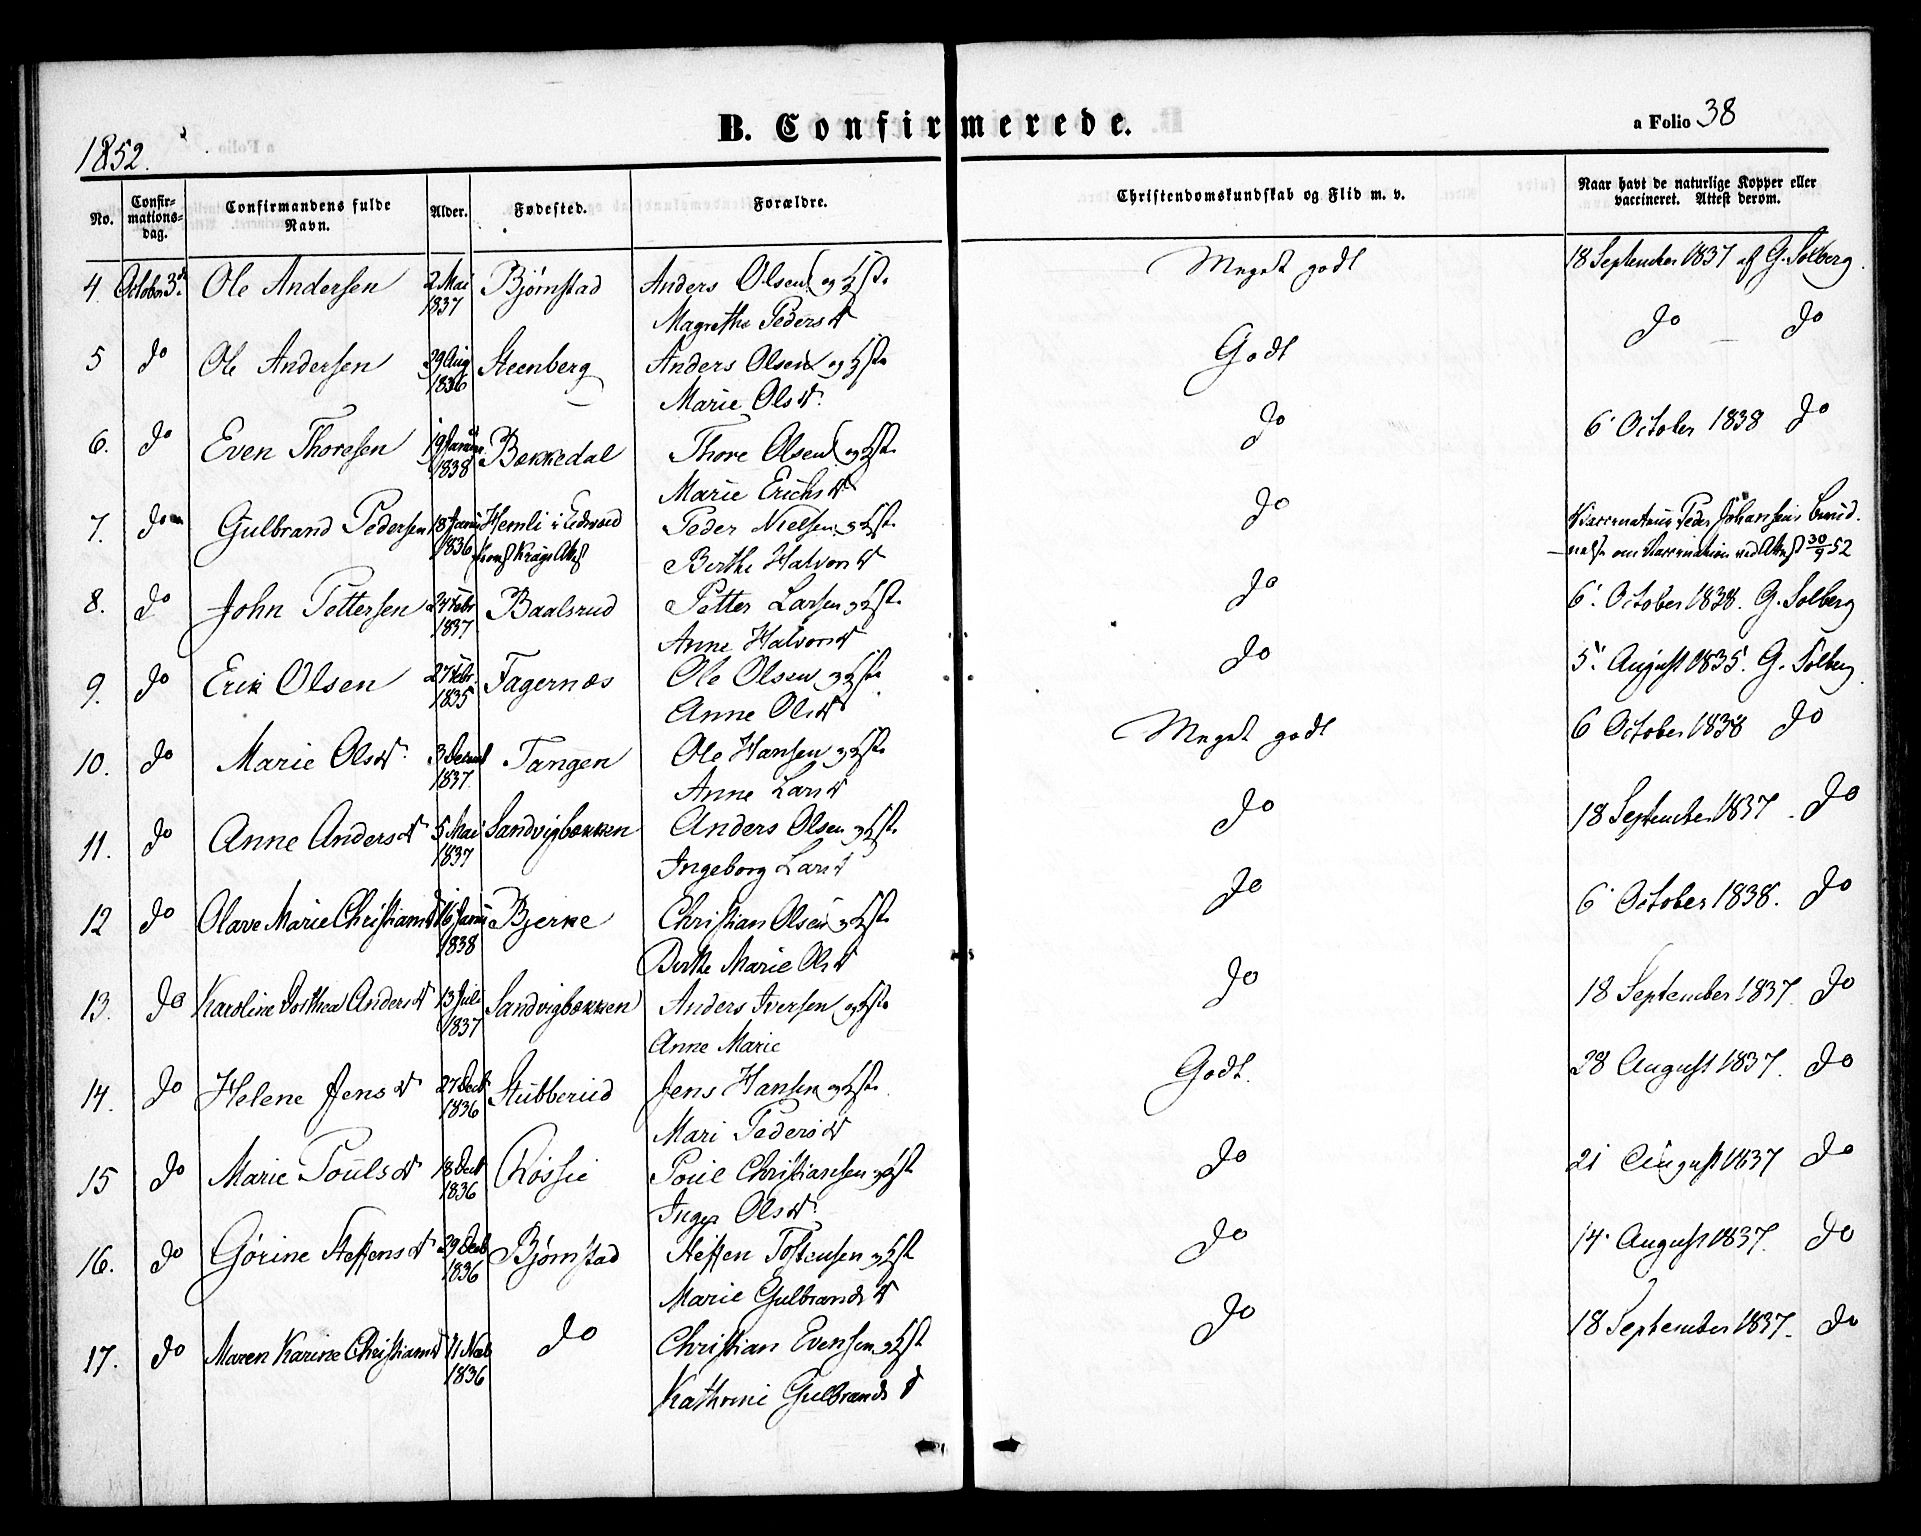 B. Confirmerede.
a Folio 38
1852.
No. Confirmationsdag. Confirmandens fulde Navn. Alder. Fødested. Forældre. Christendomskundskab og Flid m. v. Naar havt de naturlige Kopper eller vaccineret. Attest derom.
4 October 3d. Ole Andersen 2 Mai 1837 Bjørnstad Anders Olsen og Hst. Meget godt 18 September 1837 af G. Solberg.
Magrethe Pedersd
5 do Ole Andersen 29 Aug 1836 Steenberg Anders Olsen og Hst. Godt do do
Marie Olsd.
6. do Even Thoresen 19 Januar 1838 Bækkedal Thore Olsen og Hst. do 6 October 1838 do
Marie Erichsd
7. do Gulbrand Pedersen 18 Janu 1836 Hemli i Edsvold Peder Nielsen og Hst. do Vaccinateur Peder Johansens
Krags Attest Berthe Halvorsd om Vaccination ved Attest 30/9 52
8. do John Pettersen 24 Febr 1837 Baalsrud Petter Larsen og Hst. do 6. October 1838. G. Solberg
Anne Halvorsd
9. do Erik Olsen 27 Febr. 1835 Fagernæs Ole Olsen og Hst. do 5. August 1835. G. Solberg.
Anne Olsd
10. do Marie Olsd. 3 Decemb 1837 Tangen Ole Hansen og Hst. Meget godt 6 October 1838 do
Anne Larsd
11. do Anne Andersd 5 Mai 1837 Sandvigbækken Anders Olsen og Hst. do 18 September 1837. do
Ingeborg Larsd
12 do Olave Marie Christiansd 16 Janu 1838 Bjerke Christian Olsen og Hst. do 6 October 1838. do
Berthe Marie Olsd
13. do Karoline Dorthea Andersd 13 Juli 1837 Sandvigbækken Anders Iversen og Hst. do 18 September 1837. do
Anne Marie
14. do Helene Jensd 27 Decb 1836 Stubberud Jens Hansen og Hst. Godt. 28 August 1837. do
Mari Pedersd
15 do Marie Poulsd 18 Decb 1836 Poul Christiansen og Hst do 21 August 1837 do
Inger Olsd.
16. do Gørine Steffensd 29 Decb 1836 Bjørnstad Steffen Tostensen og Hst do 14. August 1837. do
Marie Gulbrandsd
17. do Maren Karine Christiansd 11 Nov 1836 do Christian Evensen og Hst do 18 September 1837. do
Kathrine Gulbrandsd